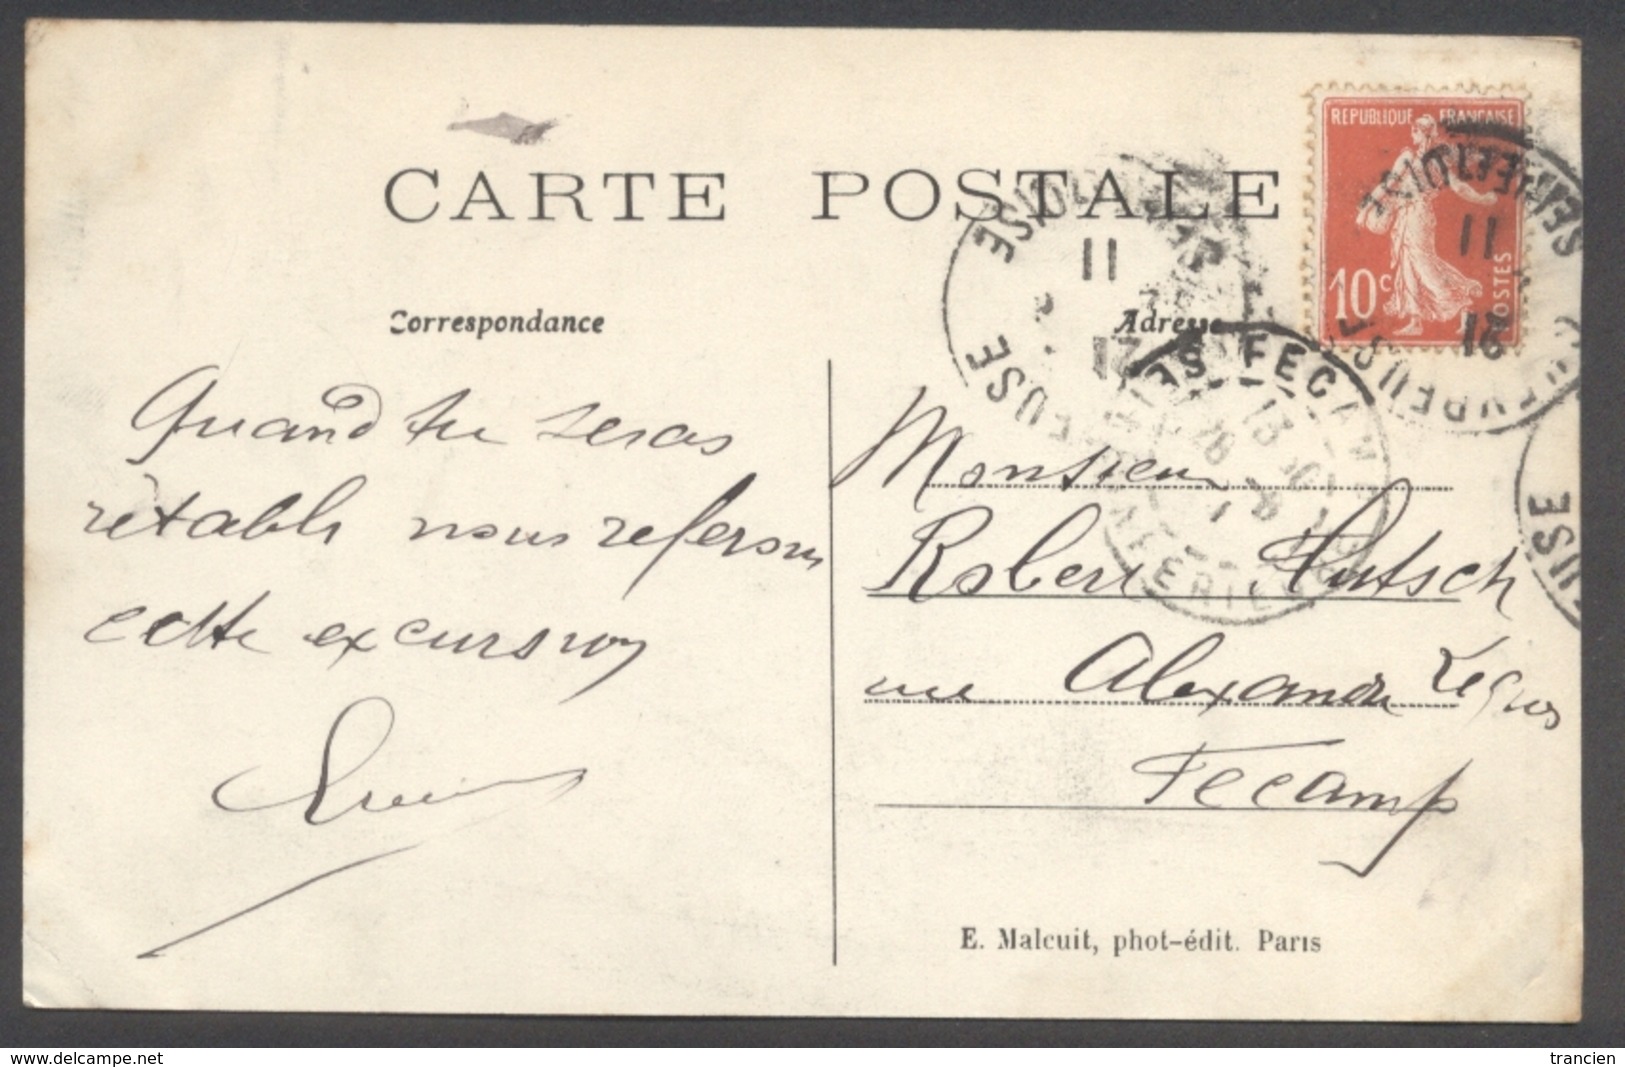 CARTE POSTALE
Correspondance
Adresse
REPUBLIQUE FRANÇAISE
10c
POSTES
CHEVREUSE
SEINE ET OISE
11
21
FECAMP
SEINE INFERIEURE
Quand tu seras
rétabli nous referons
cette excursion
Monsieur
Robert Hutsch
rue Alexandre Legros
Fecamp
E. Malcuit, phot-édit. Paris
www.delcampe.net
trancien